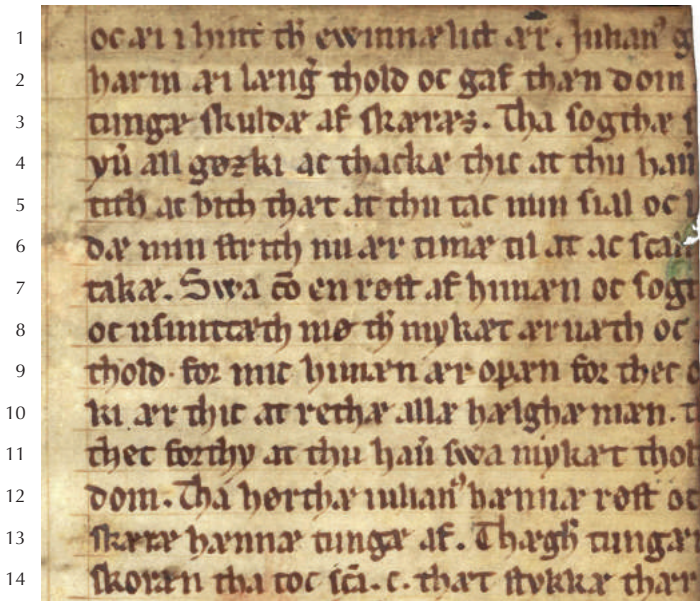 1 oc æi i hint th̄ ewinnælict ær. Julian⁹
2 harm æi længr̄ thold oc gaf thæn dom
3 tungæ skuldæ af skæræs. Tha sogthæ
4 yū all gøzki ac thackæ thic at thu haū
5 tith at bith thæt at thu tac min sial oc
6 dæ min strith nu ær timæ til at ac
7 takæ. Swa cō en røst af himæn oc
8 oc usmittæth mø th̄ mykæt ær uæth oc
9 thold. for mic himæn ær opæn for thec
10 ki ær thic at rethæ allæ hælghæ mæn.
11 thet forthy at thu haū swa mykæt
12 dom. Tha hørthæ iulian⁹ hænnæ røst
13 skæræ hænnæ tungæ af. Thægh̄ tungæ
14 skoræn tha toc sc̄a. c. thæt stykkæ